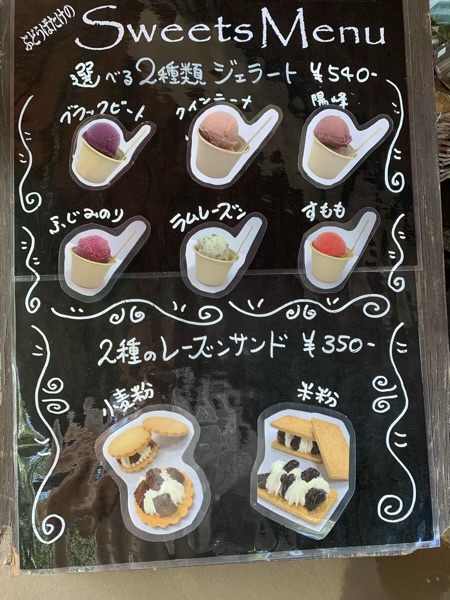 ぶどうばたけの
Sweets Menu
選べる2種類 ジェラート ¥540-
ブラックビート クイーンニーナ 陽峰
ふじみのり ラムレーズン すもも
2種のレーズンサンド ¥350-
小麦粉 米粉